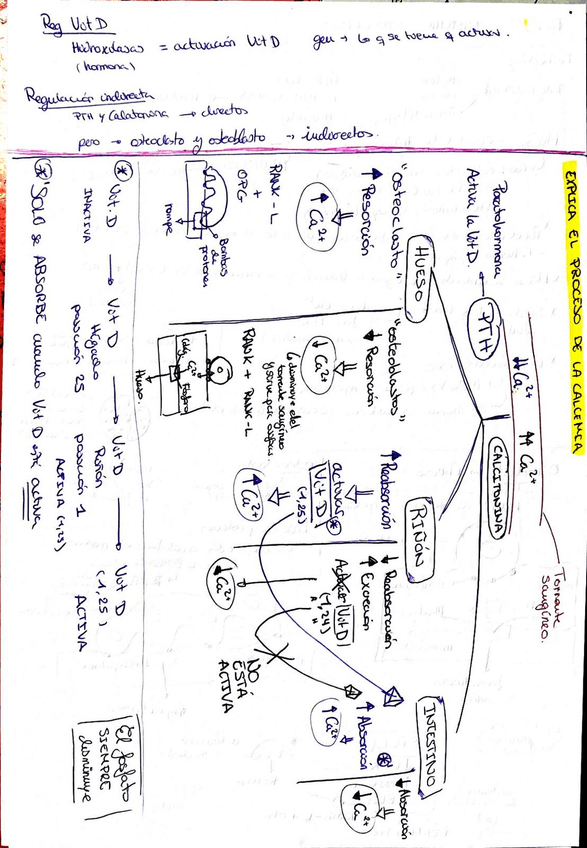 Reg Vit D
Hidroxilasas = activación Vit D
(hormona)
gen → lo q se tiene q activar.
Regulación indirecta
PTH y Calcitonina → directos
pero → osteoclasto y osteoblasto → indirectos.
EXPLICA EL PROCESO DE LA CALCEMIA
Torrente
sanguíneo.
↓↓ Ca²⁺
↑↑ Ca²⁺
Paratohormona
Activa la Vit D.
PTH
CALCITONINA
HUESO
"osteoclasto"
↑ Resorción
↑ Ca²⁺
RANK-L
+
OPG
Bombas
de
protones
rompe
"osteoblastos"
↓ Resorción
↓ Ca²⁺
torrente sanguíneo
RANK + RANK-L
Ca²⁺
Fosfato
Hueso.
RIÑÓN
↑ Reabsorción
activas *
Vit D
(1,25)
↑ Ca²⁺
↓ Reabsorción
↑ Excreción
Vit D
"(1,24)"
↓ Ca²⁺
NO
ESTÁ
ACTIVA
INTESTINO
↑ Absorción *
↑ Ca²⁺
↓ Absorción
↓ Ca²⁺
* Vit. D → Vit D → Vit D → Vit D
INACTIVA
Hígado
posición 25
Riñón
posición 1
ACTIVA (1,25)
(1,25)
ACTIVA
* "SOLO se ABSORBE cuando Vit D está activa
El fosfato
SIEMPRE
disminuye